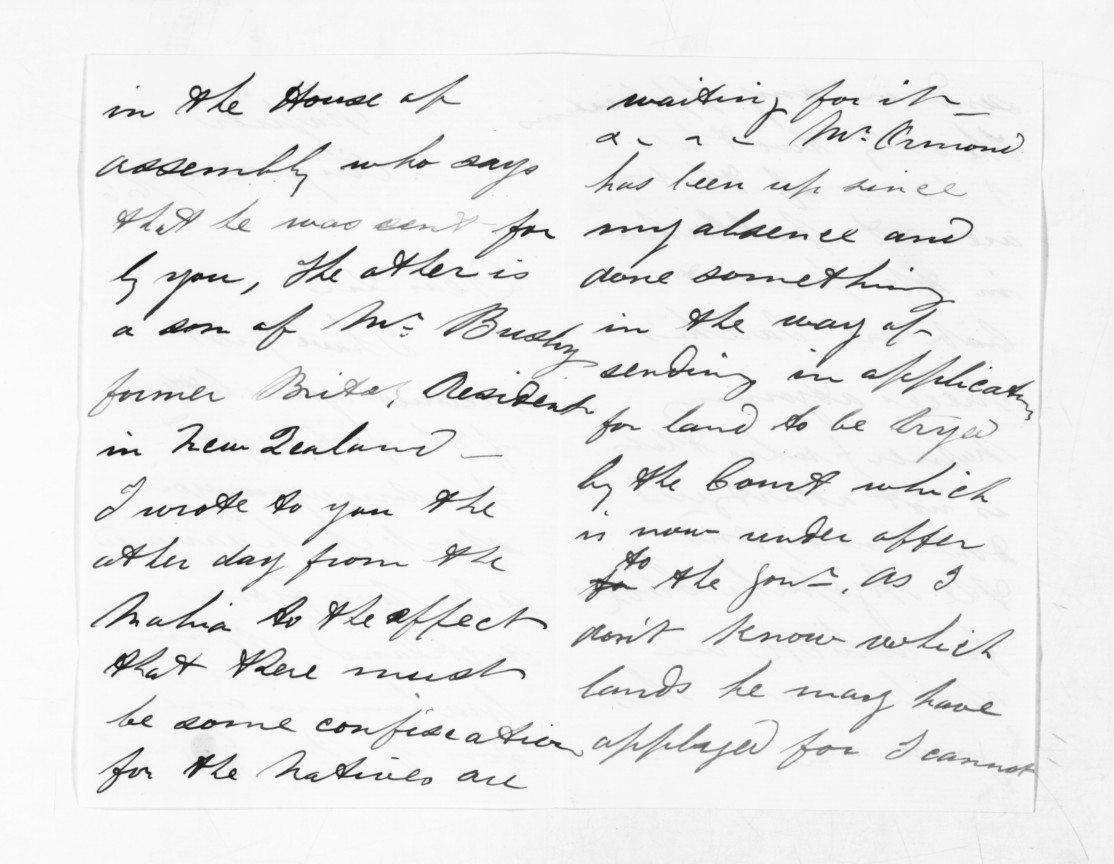 in the House of
assembly who says
that he was sent for
by you, The other is
a son of Mr. Busby
former British Resident
in New Zealand —
I wrote to you the
other day from the
Mahia to the effect
that there must
be some confiscation
for the Natives are
waiting for it —
Mr. Ormond
has been up since
my absence and
done something
in the way of
sending in applications
for land to be tryed
by the Court which
is now under offer
to the Govt. As I
don't know which
lands he may have
applyed for I cannot